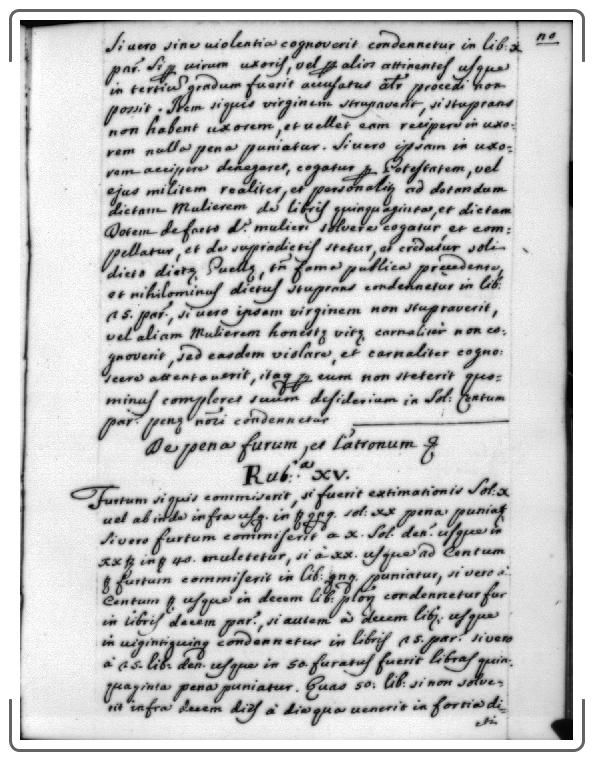 no
Si vero sine violentia cognoverit condennetur in lib: x
par. Si p virum uxoris, vel p alios attinentes usque
in tertiũ gradum fuerit accusatus atr procedi non
possit. Item siquis virginem strupaverit, si stuprans
non habent uxorem, et vellet eam recipere in uxo:
rem nulla pena puniatur. Si vero ipsam in uxo=
rem accipere denegaret, cogatur p Potestatem, vel
ejus militem realiter, et personaliter ad dotandum
dictam Mulierem de libris quinquaginta, et dictam
Dotem de facto dẽ mulieri solvere cogatur et com=
pellatur, et de supradictis stetur, et credatur soli
dicto puelle, tñ fama publica precedente,
et nihilominus dictus stuprans condennetur in lib:
25. par., si vero ipsam virginem non stupraverit,
vel aliam Mulierem honeste vite carnaliter non co:
gnoverit, sed easdem violare, et carnaliter cogno:
scere attentaverit, itaq p eum non steterit quo=
minus compleret suum desiderium in Sol: Centum
par. pene nõri condennetur
De pena furum, et Latronum
Rub.a XV.
Furtum siquis commiserit, si fuerit extimationis Sol: x
vel ab inde infra usq. in sol: xx pena puniat
Si vero furtum commiserit a x. Sol. den. usque in
xx in 40. muletetur, si à xx. usque ad Centum
furtum commiserit in lib: qnq. puniatur, si vero à
Centum usque in decem lib: condennetur fur
in libris decem par., si autem à decem lib. usque
in vigintiquinq condennetur in libris 25. par. si vero
à 25. lib: den. usque in 50. furatus fuerit libras quin:
quaginta pena puniatur. Quas 50: lib: si non solve=
rit infra decem dies à die qua venerit in fortia di=
cti